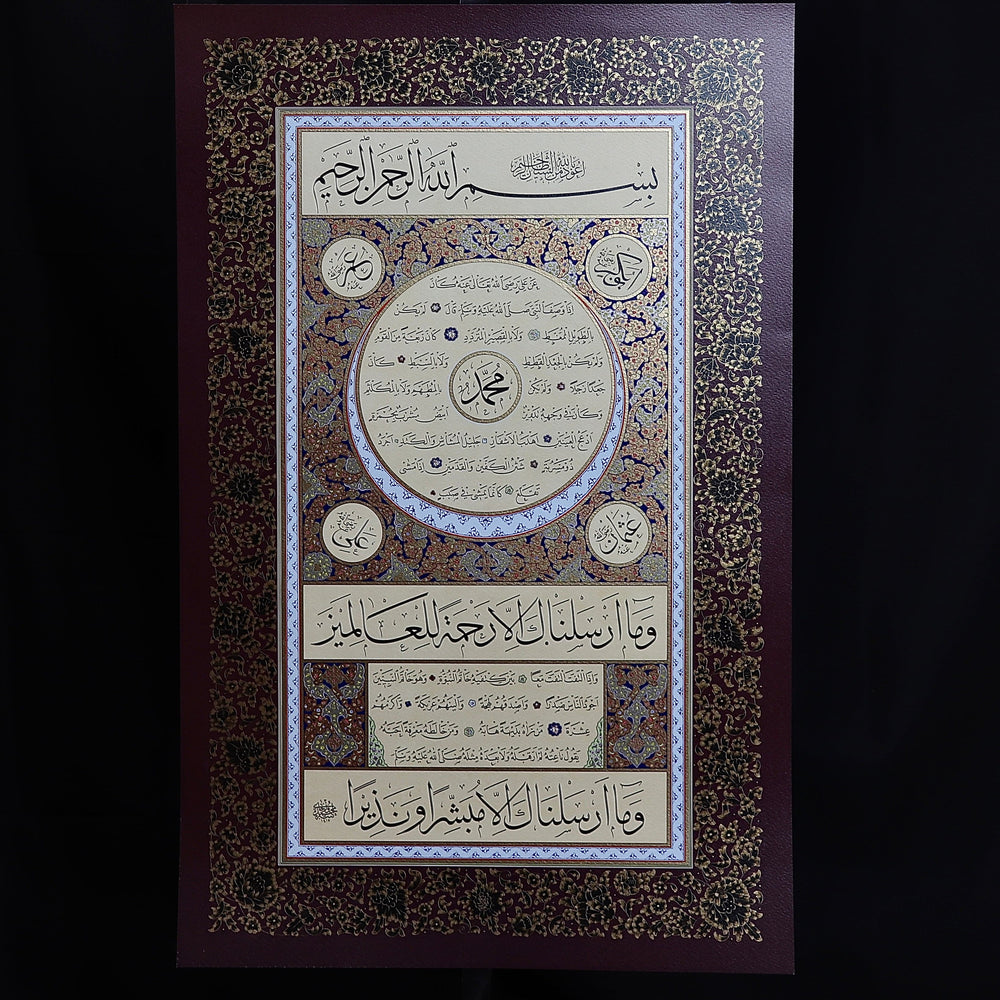 أعوذ بالله من الشيطان الرجيم
بسم الله الرحمن الرحيم
أبو بكر
عمر
عن علي رضي الله تعالى عنه كان
إذا وصف النبي صلى الله عليه وسلم قال لم يكن
بالطويل الممغط ولا بالقصير المتردد كان ربعة من القوم
ولم يكن بالجعد القطط ولا بالسبط كان
جعدا رجلا ولم يكن بالمطهم ولا بالمكلثم
محمد
وكان في وجهه تدوير أبيض مشرب بحمرة
أدعج العينين أهدب الأشفار جليل المشاش والكتد أجرد
ذو مسربة شثن الكفين والقدمين إذا مشى
تقلع كأنما يمشي في صبب
عثمان
علي
وما أرسلناك إلا رحمة للعالمين
وإذا التفت التفت معا بين كتفيه خاتم النبوة وهو خاتم النبيين
أجود الناس صدرا وأصدقهم لهجة وألينهم عريكة وأكرمهم
عشرة من رآه بديهة هابه ومن خالطه معرفة أحبه
يقول ناعته لم أر قبله ولا بعده مثله صلى الله عليه وسلم
وما أرسلناك إلا مبشرا ونذيرا